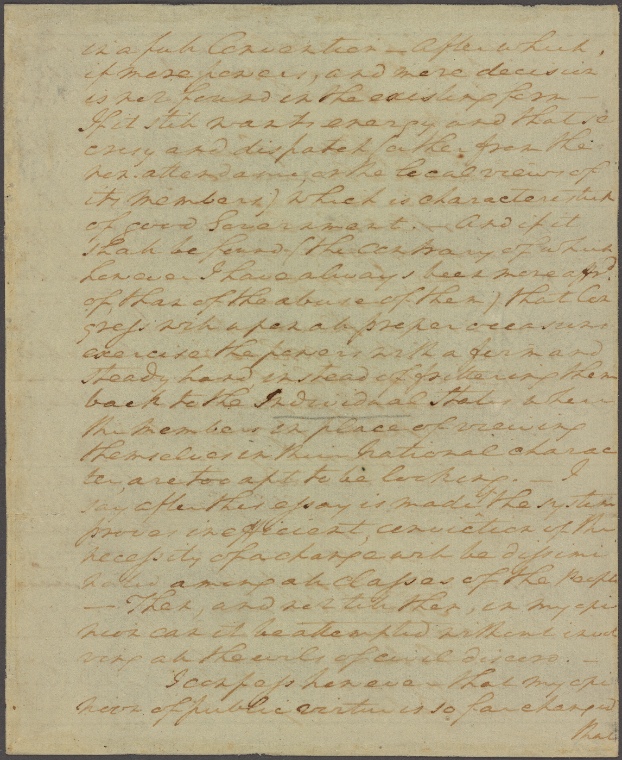 in a full Convention — After which,
if more powers, and more decision
is not found in the existing form —
If it still wants energy and that se
crecy and dispatch (either from the
non-attendance, or the local views of
its members) which is characteristick
of good Government. — And if it
shall be found (the contrary of which
however I have always been more affrd.
of, than of the abuse of them) that Con
gress will upon all proper occasions
exercise the powers with a firm and
steady hand, instead of frittering them
back to the Individual States where
the members in place of viewing
themselves in their national charac
ter, are too apt to be looking. — I
say after this essay is made if the system
proves inefficient, conviction of the
necessity of a change will be dissemi
nated among all classes of the People
— Then, and not till then, in my opi
nion can it be attempted without invol
ving all the evils of civil discord. —
I confess however that my opi
nion of public virtue is so far changed
that